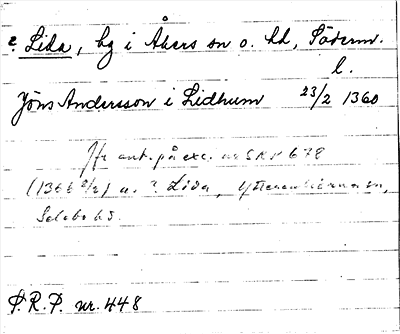 ? Lida, hg i Åkers sn o. hd, Söderm.
l.
Jöns Andersson i Lidhum 23/2 1360
Jfr ant. på exc. ur SRP 678
(1366 2/2) u. ? Lida, Ytterenhörna sn,
Selebo hd.
P.R.P. nr. 448